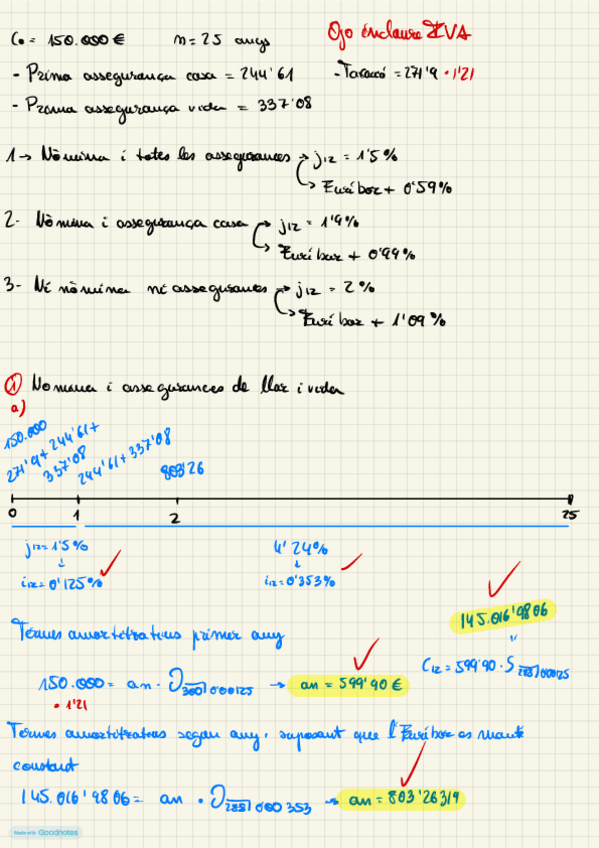 C₀ = 150.000 € n = 25 anys Ojo incloure IVA
- Prima assegurança casa = 244'61 - Taxació = 271'9 · 1'21
- Prima assegurança vida = 337'08
1 → Nòmina i totes les assegurances → j₁₂ = 1'5%
↳ Euríbor + 0'59%
2- Nòmina i assegurança casa → j₁₂ = 1'9%
↳ Euríbor + 0'99%
3- Ni nòmina ni assegurances → j₁₂ = 2%
↳ Euríbor + 1'09%
① Nomina i assegurances de llar i vida
a)
150.000
271'9 + 244'61 +
337'08
244'61 + 337'08
803'26
0 1 2 25
j₁₂ = 1'5% 4'24%
↓ ↓
i₁₂ = 0'125% i₁₂ = 0'353%
145.016'9806
Termes amortitatius primer any
C₁₂ = 599'90 · S 288⌉0'00125
150.000 = an · a 300⌉0'00125 → an = 599'90 €
· 1'21
Termes amortitatius segon any, suposant que l'Euríbor es manté
constant
145.016'9806 = an · a 288⌉0'00353 → an = 803'26319
Made with Goodnotes